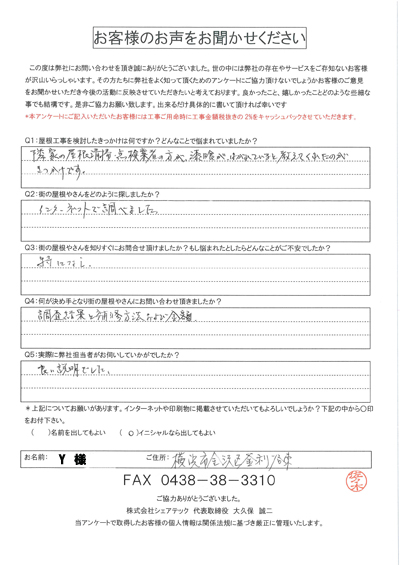 お客様のお声をお聞かせください
この度は弊社にお問い合わせを頂き誠にありがとうございました。世の中には弊社の存在やサービスをご存知ないお客様
が沢山いらっしゃいます。その方たちに弊社をよく知って頂くためのアンケートにご協力頂けないでしょうかお客様のご意見
をお聞かせいただき今後の活動に反映させていただきたいと考えております。良かったこと、嬉しかったことどのような些細な
事でも結構です。是非ご協力お願い致します。出来るだけ具体的に書いて頂ければ幸いです
*本アンケートにご記入いただいたお客様には工事ご用命時に工事金額税抜きの2%をキャッシュバックさせていただきます。
Q1:屋根工事を検討したきっかけは何ですか?どんなことで悩まれていましたか?
隣家の屋根清掃点検業者の方が、漆喰がはがれていると教えてくれたのが
きっかけです。
Q2:街の屋根やさんをどのように探しましたか?
インターネットで調べました。
Q3:街の屋根やさんを知りすぐにお問合せ頂けましたか?もし悩まれたとしたらどんなことがご不安でしたか?
特になし.
Q4:何が決め手となり街の屋根やさんにお問い合わせ頂きましたか?
調査結果と補修方法および金額.
Q5:実際に弊社担当者がお伺いしていかがでしたか?
良い説明でした.
*上記についてお願いがあります。インターネットや印刷物に掲載させていただいてもよろしいでしょうか?下記の中から〇印
をお付下さい。
( )名前を出してもよい ( ○ )イニシャルなら出してもよい
お名前: Y 様 ご住所: 横浜市金沢区釜利谷東
FAX 0438-38-3310
ご協力ありがとうございました。
株式会社シェアテック 代表取締役 大久保 誠二
当アンケートで取得したお客様の個人情報は関係法規に基づき厳正に管理いたします。